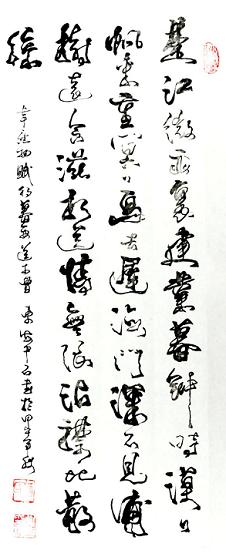 楚江微雨里建業暮鐘時漠漠
帆來重冥冥鳥去遲海門深不見浦
樹遠含滋相送情無限沾襟比散
絲
韋應物賦得暮雨送李曹